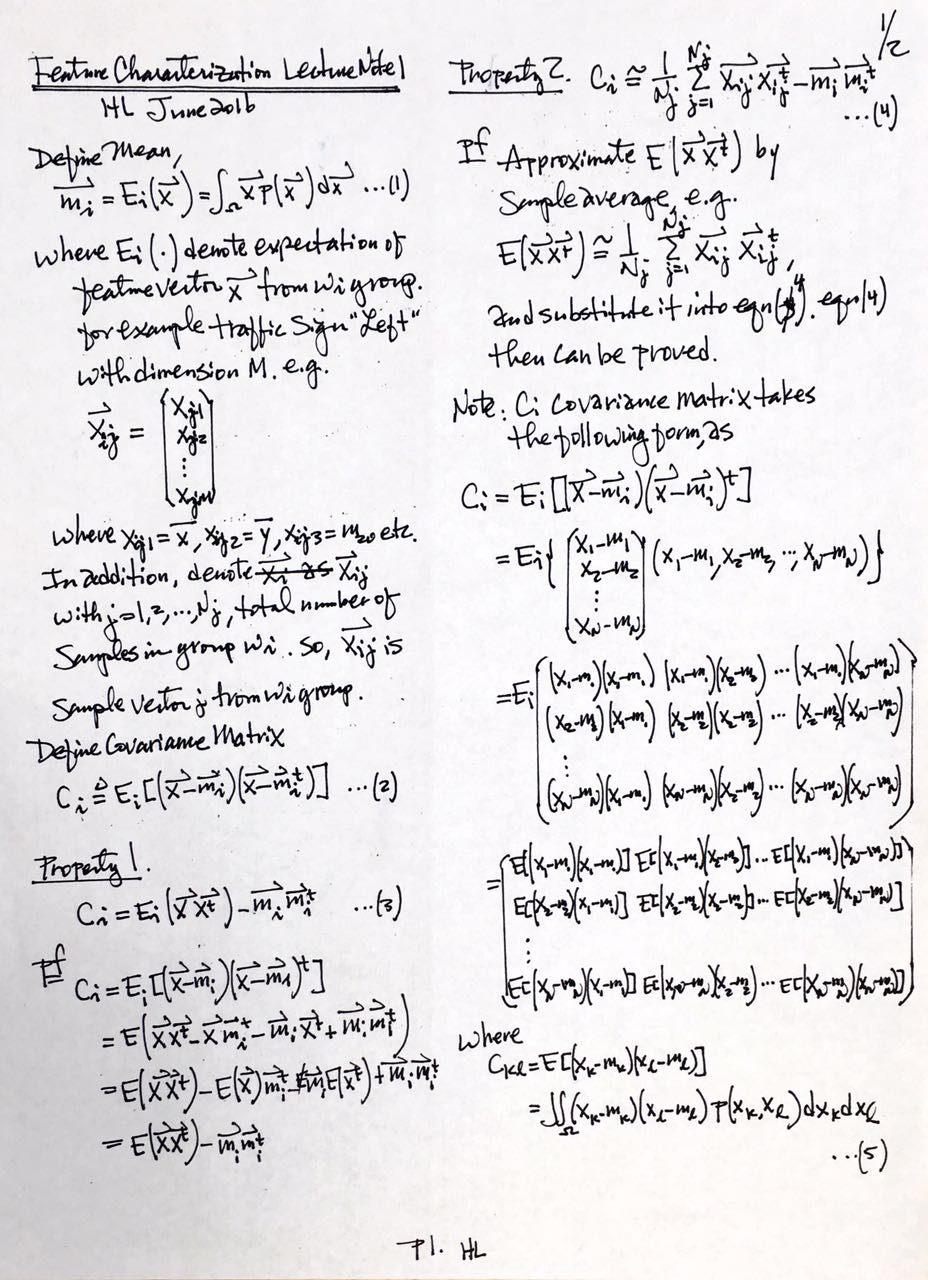 1/2
Feature Characterization Lecture Note 1
HL June 2016
Define Mean,
m⃗_i = E_i(x⃗) = ∫_Ω x⃗ p(x⃗) dx⃗ ...(1)
where E_i(.) denote expectation of
feature vector x⃗ from w_i group.
for example traffic Sign "Left"
with dimension M. e.g.
x⃗_ij = (x_j1
x_j2
⋮
x_jM)
where x_ij1 = x̄, x_ij2 = ȳ, x_ij3 = m_20 etc.
In addition, denote x⃗_i as x⃗_ij
with j=1,2,...,N_j, total number of
Samples in group w_i. So, x⃗_ij is
Sample vector j from w_i group.
Define Covariance Matrix
C_i ≜ E_i[(x⃗-m⃗_i)(x⃗-m⃗_i^t)] ...(2)
Property 1.
C_i = E_i(x⃗x⃗^t) - m⃗_i m⃗_i^t ...(3)
Pf
C_i = E_i[(x⃗-m⃗_i)(x⃗-m⃗_i)^t]
= E(x⃗x⃗^t - x⃗m⃗_i^t - m⃗_i x⃗^t + m⃗_i m⃗_i^t)
= E(x⃗x⃗^t) - E(x⃗)m⃗_i^t - m⃗_i E(x⃗^t) + m⃗_i m⃗_i^t
= E(x⃗x⃗^t) - m⃗_i m⃗_i^t
Property 2. C_i ≅ 1/N_j Σ_{j=1}^{N_j} x⃗_ij x⃗_ij^t - m⃗_i m⃗_i^t
...(4)
Pf Approximate E(x⃗x⃗^t) by
Sample average, e.g.
E(x⃗x⃗^t) ≅ 1/N_j Σ_{j=1}^{N_j} x⃗_ij x⃗_ij^t,
and substitute it into eqn(4). eqn(4)
then can be proved.
Note: C_i Covariance matrix takes
the following form, as
C_i = E_i[(x⃗-m⃗_i)(x⃗-m⃗_i)^t]
= E_i{(x_1-m_1
x_2-m_2
⋮
x_N-m_N) (x_1-m_1, x_2-m_2, ..., x_N-m_N)}
= E_i((x_1-m_1)(x_1-m_1) (x_1-m_1)(x_2-m_2) ... (x_1-m_1)(x_N-m_N)
(x_2-m_2)(x_1-m_1) (x_2-m_2)(x_2-m_2) ... (x_2-m_2)(x_N-m_N)
⋮
(x_N-m_N)(x_1-m_1) (x_N-m_N)(x_2-m_2) ... (x_N-m_N)(x_N-m_N))
= (E[(x_1-m_1)(x_1-m_1)] E[(x_1-m_1)(x_2-m_2)] ... E[(x_1-m_1)(x_N-m_N)]
E[(x_2-m_2)(x_1-m_1)] E[(x_2-m_2)(x_2-m_2)] ... E[(x_2-m_2)(x_N-m_N)]
⋮
E[(x_N-m_N)(x_1-m_1)] E[(x_N-m_N)(x_2-m_2)] ... E[(x_N-m_N)(x_N-m_N)])
where
C_kl = E[(x_k-m_k)(x_l-m_l)]
= ∬_Ω (x_k-m_k)(x_l-m_l) p(x_k,x_l) dx_k dx_l
...(5)
P1. HL